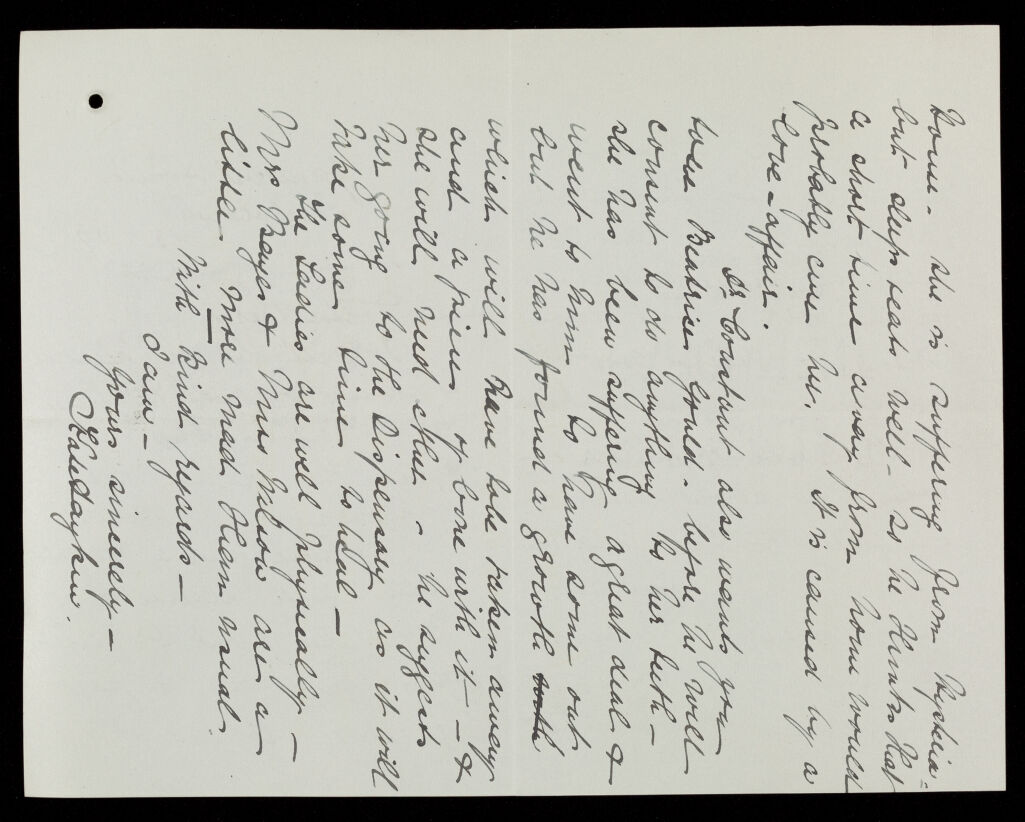 home. She is suffering from Hysteria -
but sleeps & eats well - so he thinks that
a short time away from home would
probably cure her. It is caused by a
love-affair.
Dr Constant also wants you
to see Beatrice Gould - before he will
consent to do anything to her teeth -
she has been suffering a great deal &
went to him to have some out
but he has found a growth
which will have to be taken away
and a piece of bone with it - &
she will need ether - he suggests
her going to the Dispensary as it will
take some time to heal -
The Ladies are well physically -
Mrs Bayes & Miss Nelson are a
little more mad than usual.
With kind regards -
I am -
Yours sincerely -